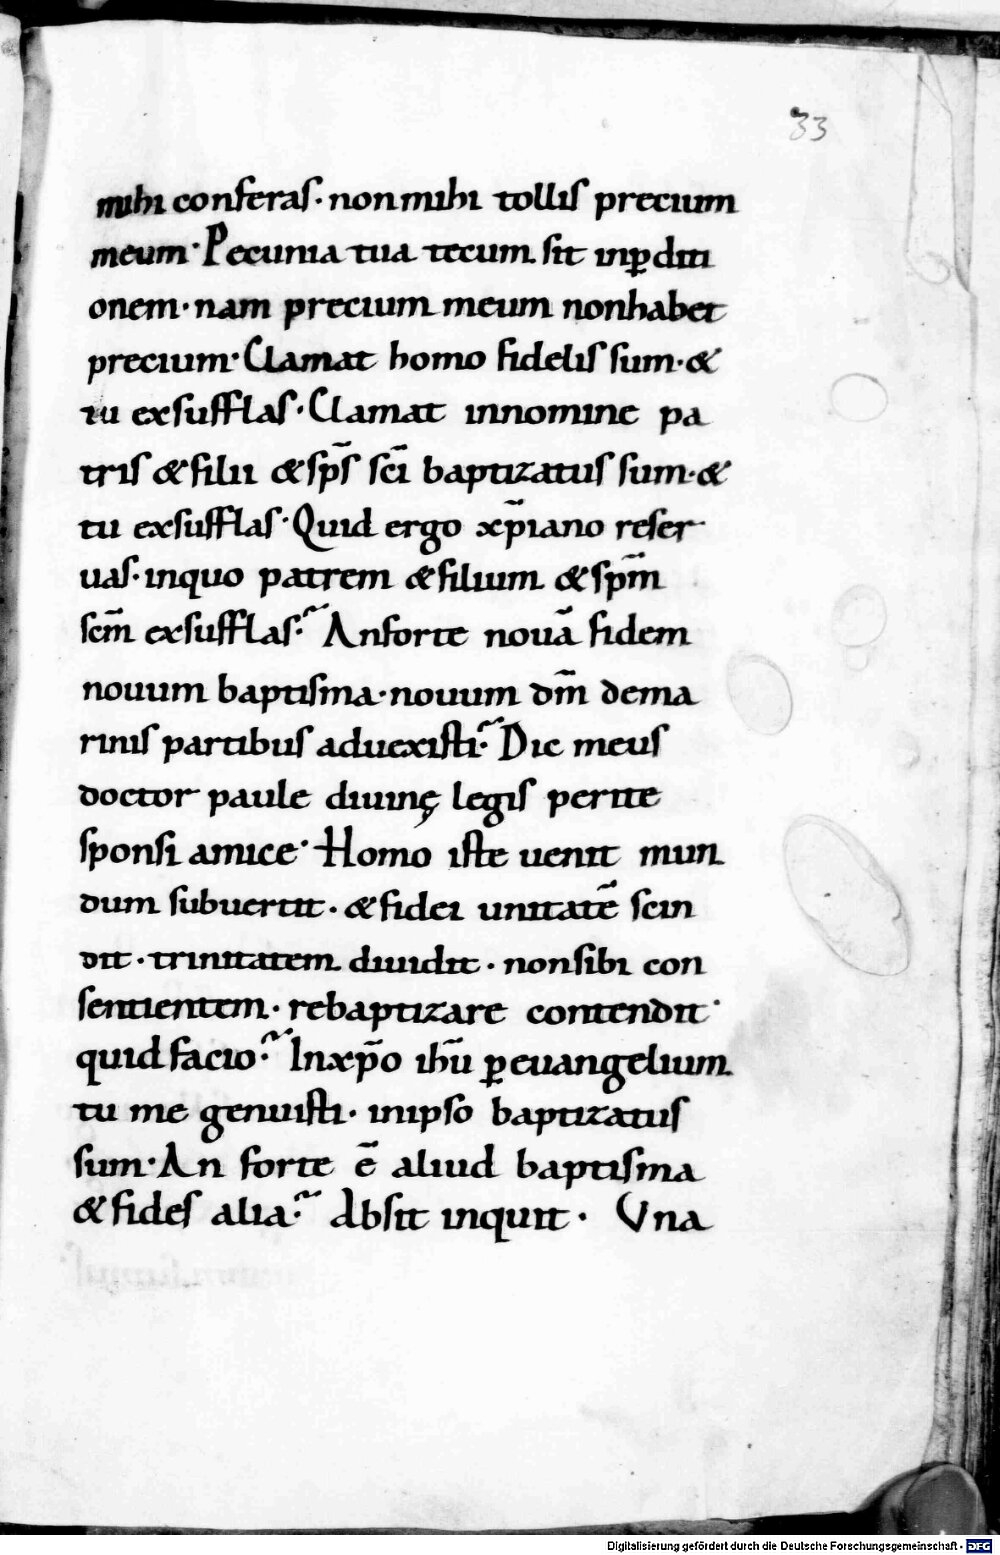 33
mihi conferas · non mihi tollis precium
meum · Pecunia tua tecum sit inꝑditi
onem · nam precium meum nonhabet
precium · Clamat homo fidelis sum · &
tu exsufflas · Clamat innomine pa
tris &filii &sp̄s sc̄i baptizatus sum · &
tu exsufflas · Quid ergo xp̄iano reser
uas · inquo patrem &filium &sp̄m
sc̄m exsufflas? An forte nouā fidem
nouum baptisma · nouum dm̄ dema
rinis partibus aduexisti? Dic meus
doctor paule diuinę legis perite
sponsi amice · Homo iste uenit mun
dum subuertit · &fidei unitatē scin
dit · trinitatem diuidit · nonsibi con
sentientem · rebaptizare contendit ·
quid facio? Inxp̄o ihū ꝑeuangelium
tu me genuisti · inipso baptizatus
sum · An forte ē aliud baptisma
&fides alia? Absit inquit · Una
Digitalisierung gefördert durch die Deutsche Forschungsgemeinschaft - DFG